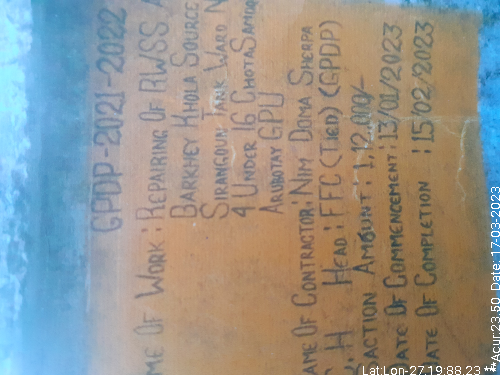 GPDP-2021-2022
ME OF WORK : REPAIRING OF RWSS
BARKHEY KHOLA SOURCE
SIRANGOUN TANK WARD N
4 UNDER 16 CHOTA SAMUA
ARUBOTAY GPU
AME OF CONTRACTOR: NIM DOMA SHERPA
H HEAD : FFC (TIED) (GPDP)
ACTION AMOUNT : 1,12,000/-
ATE OF COMMENCEMENT : 13/01/2023
ATE OF COMPLETION : 15/02/2023
Lat:Lon-27.19:88.23 **Acur:23.50 Date: 17-03-2023